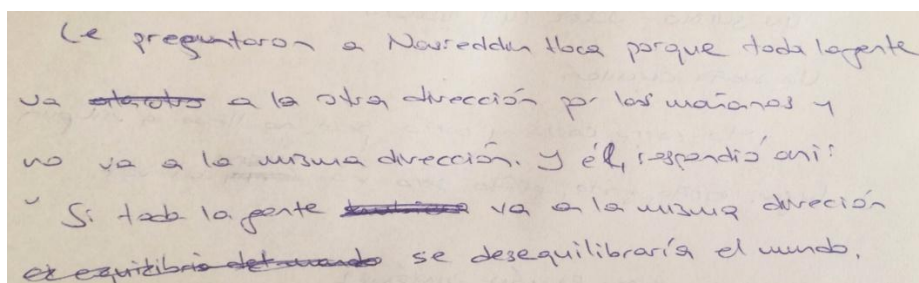 Le preguntaron a Nasreddin Hoca porque toda la gente
va a la otra dirección por las mañanas y
no va a la misma dirección. Y él, respondió así:
" Si toda la gente va a la misma direción
se desequilibraría el mundo.